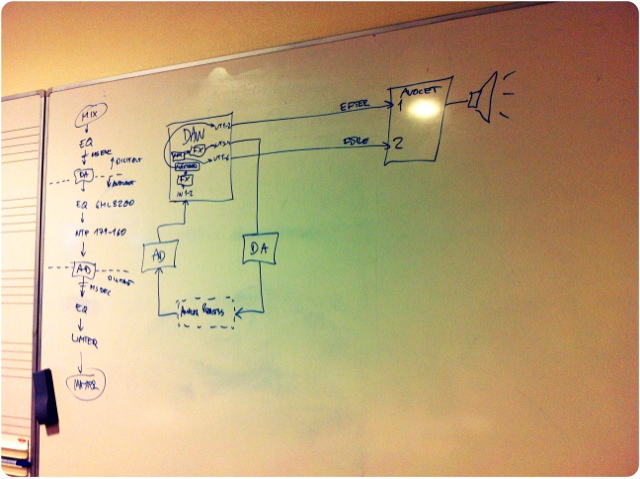 MIX
EQ
MS DEC
DIGITALT
DA
ANALOGT
EQ GML 8200
NTP 179-160
AD
DIGITALT
MS DEC
EQ
LIMITER
MASTER
DAW
UT 1-2
FX
UT 3-4
UT 5-6
FX
IN 1-2
AD
DA
EFTER
FØRE
AVOCET
1
2